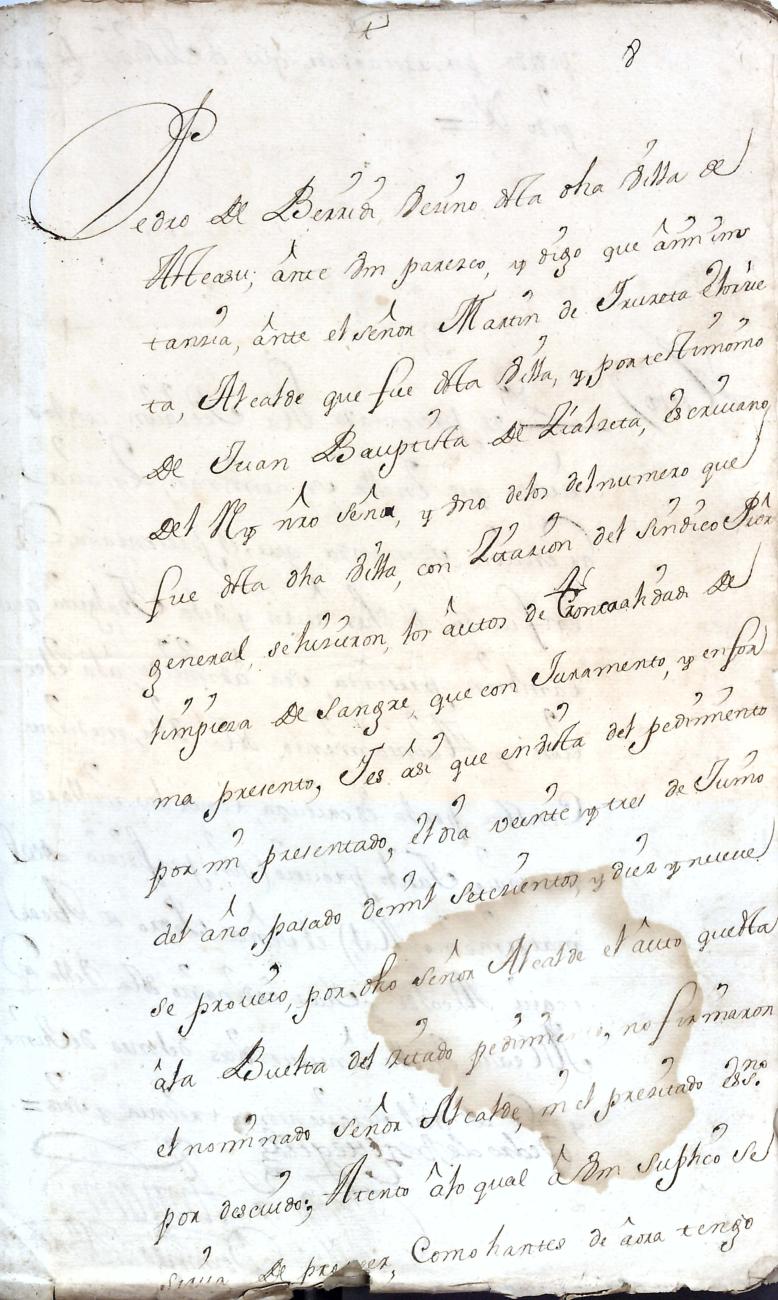 8
Pedro de Berridi Vezino desta dha Villa de
Asteasu, ânte Vm parezco, y digo que â mi ins
tanzia, ânte el señor Martin de Irureta Elorrie
ta, Alcalde que fue desta Villa, y, por testimonio
de Juan Bauptista de Lialzeta, Escrivano
del Ry nro señor, y Vno delos del numero que
fue desta dha Villa, con Zitazion del sindico Pror
general, sehizieron, los âutos de
limpieza de sangre, que con Juramento, y en for
ma presento, Jes âsi que en Vista del pedimiento
por mi presentado, el dia veinte y tres de Junio
del año, pasado de mil setezientos, y diez y nueve
se proveio, por dho señor Alcalde el âuto que esta
âla Buelta del zitado pedimiento, no firmaron
el nominado señor Alcalde, ni el prezitado essno.
por descuido; Atento âlo qual â Vm suplico se
sirva de proveer, Como hantes de âora tengo